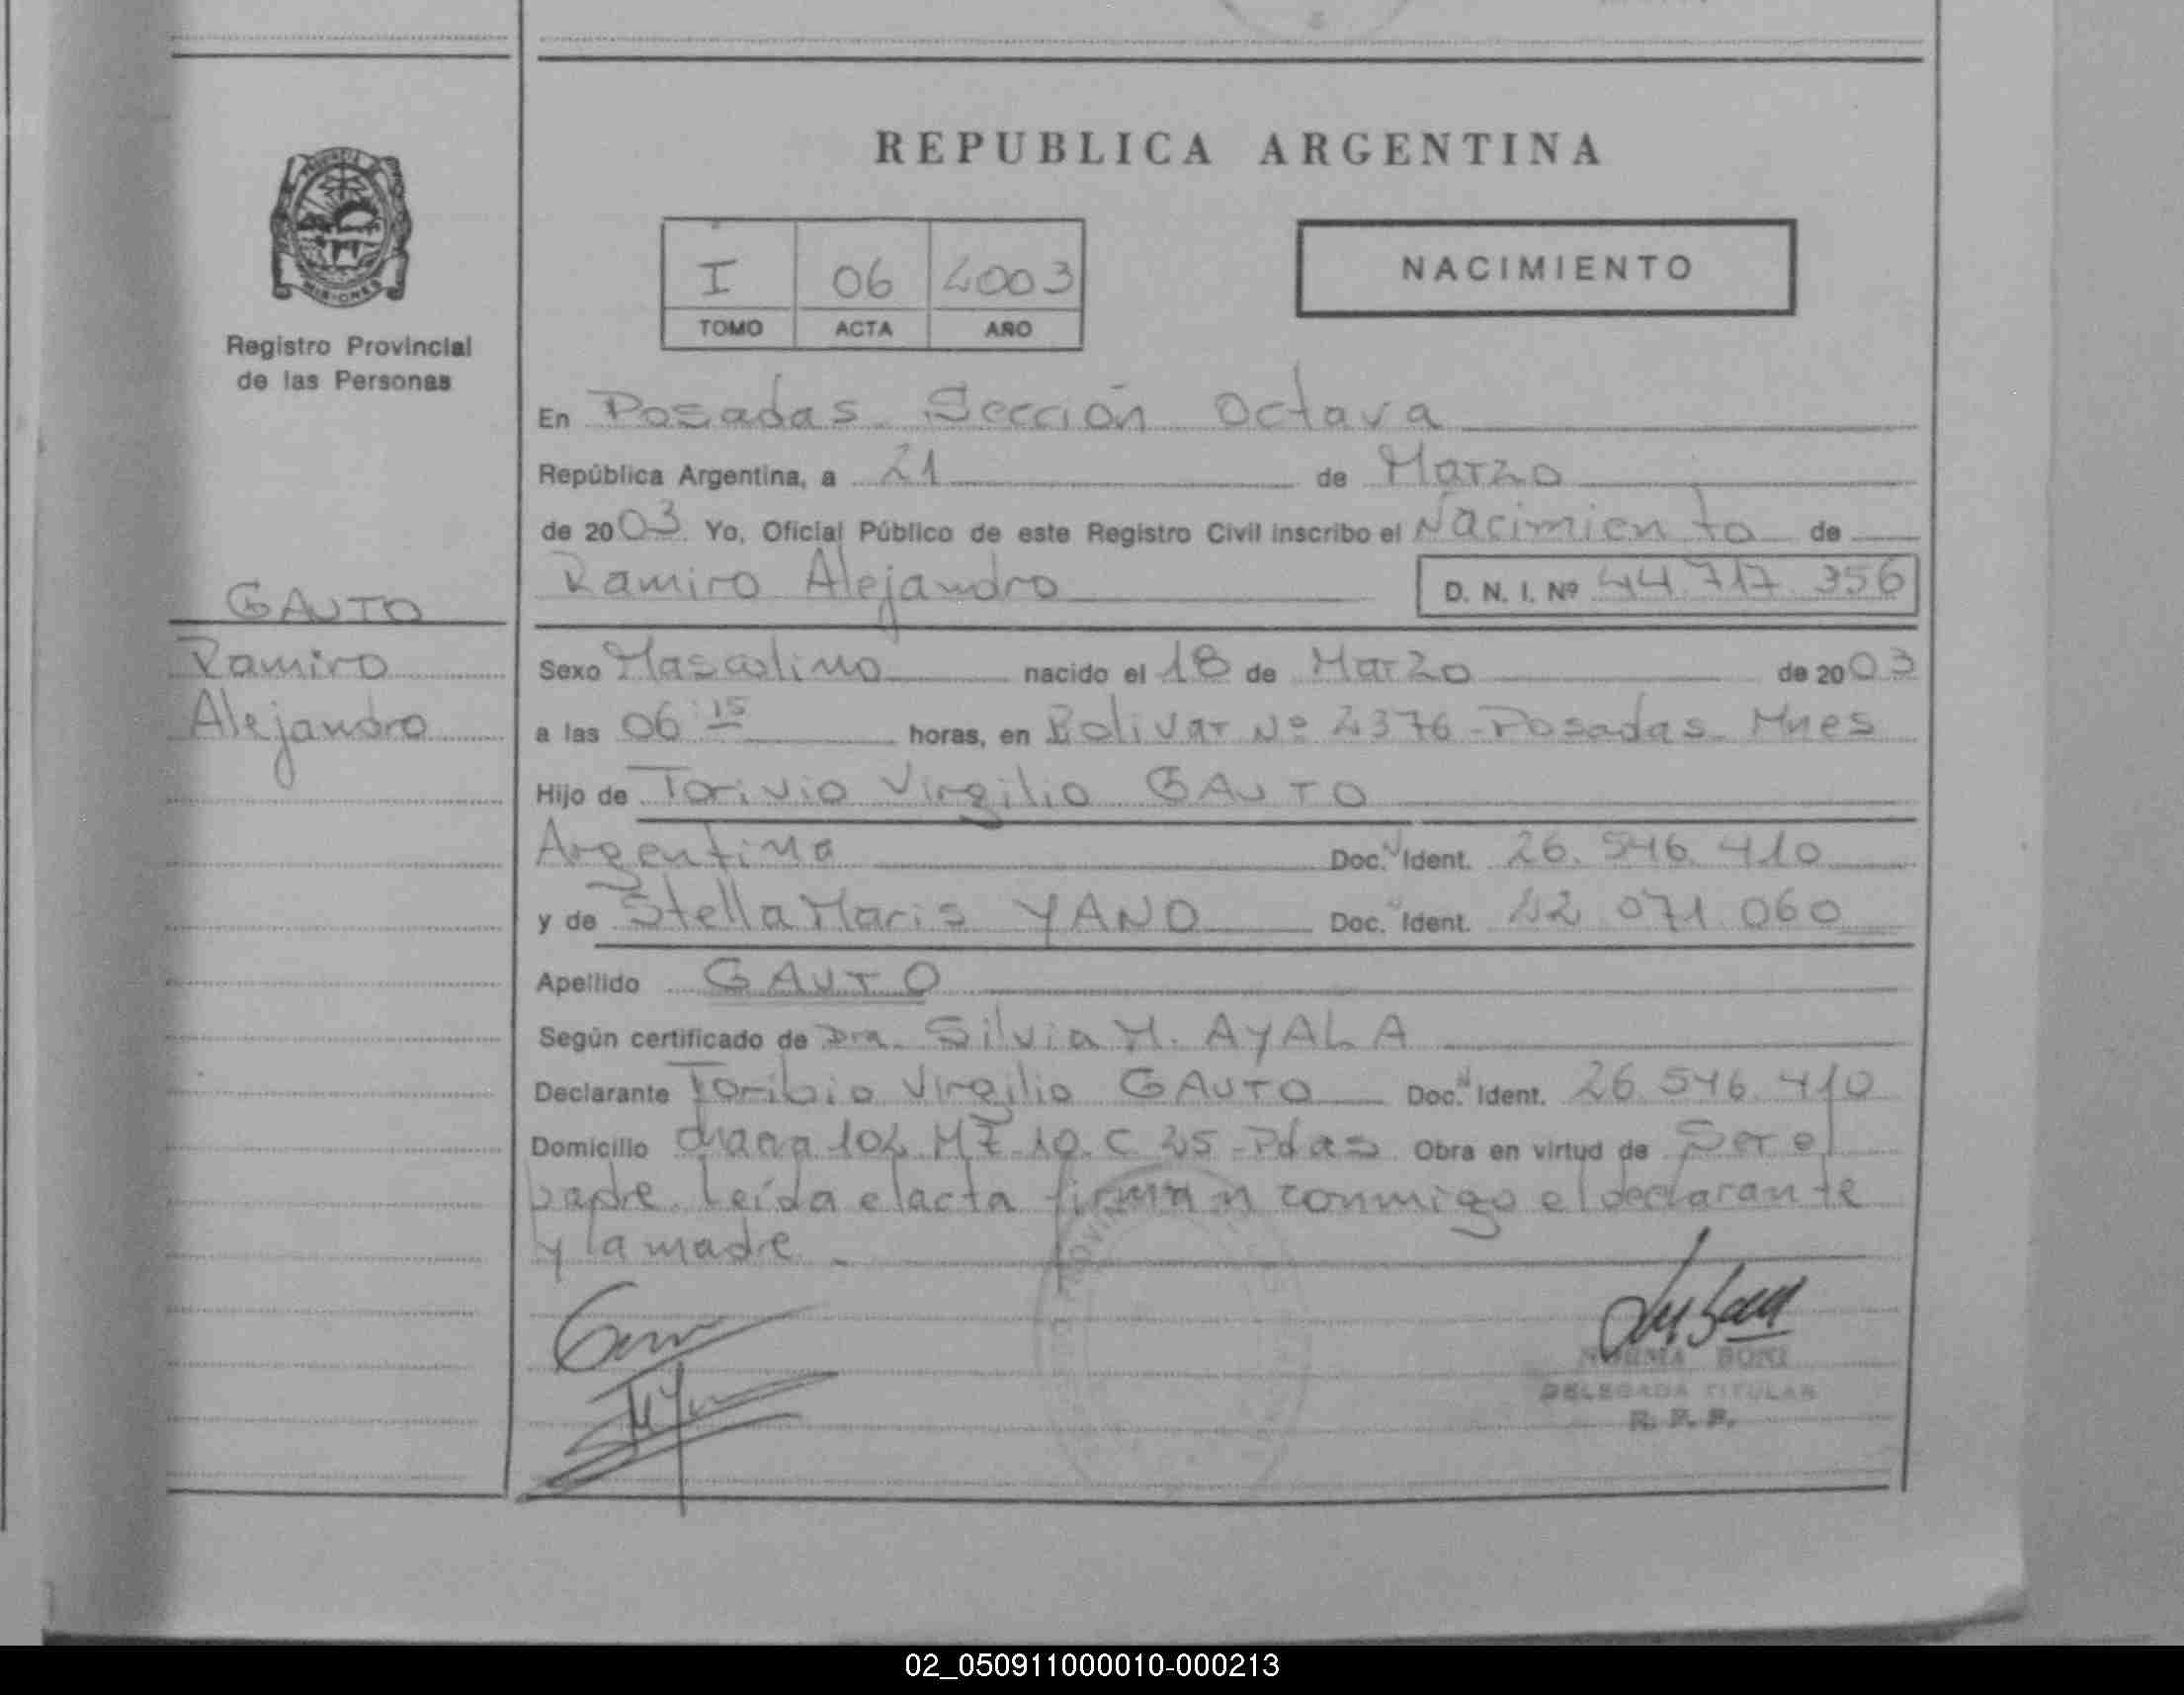 REPUBLICA ARGENTINA
I 06 2003
TOMO ACTA AÑO
NACIMIENTO
MISIONES
Registro Provincial
de las Personas
GAUTO
Ramiro
Alejandro
En Posadas Sección Octava
República Argentina, a 21 de Marzo
de 2003. Yo, Oficial Público de este Registro Civil inscribo el Nacimiento de
Ramiro Alejandro D. N. I. Nº 44.717.356
Sexo Masculino nacido el 18 de Marzo de 2003
a las 06 15 horas, en Bolivar Nº 2376 - Posadas Mnes
Hijo de Torivio Virgilio GAUTO
Argentina Doc. Ident. 26.546.410
y de Stella Maris YANO Doc. Ident. 071.060
Apellido GAUTO
Según certificado de Dra. Silvia M. AYALA
Declarante Toribio Virgilio GAUTO Doc. Ident. 26.546.410
Domicilio Mz C 25 - Pdas Obra en virtud de Ser el
padre. Leída el acta firman conmigo el declarante
y la madre.
NORMA BONI
DELEGADA TITULAR
R. P. P.
02_050911000010-000213